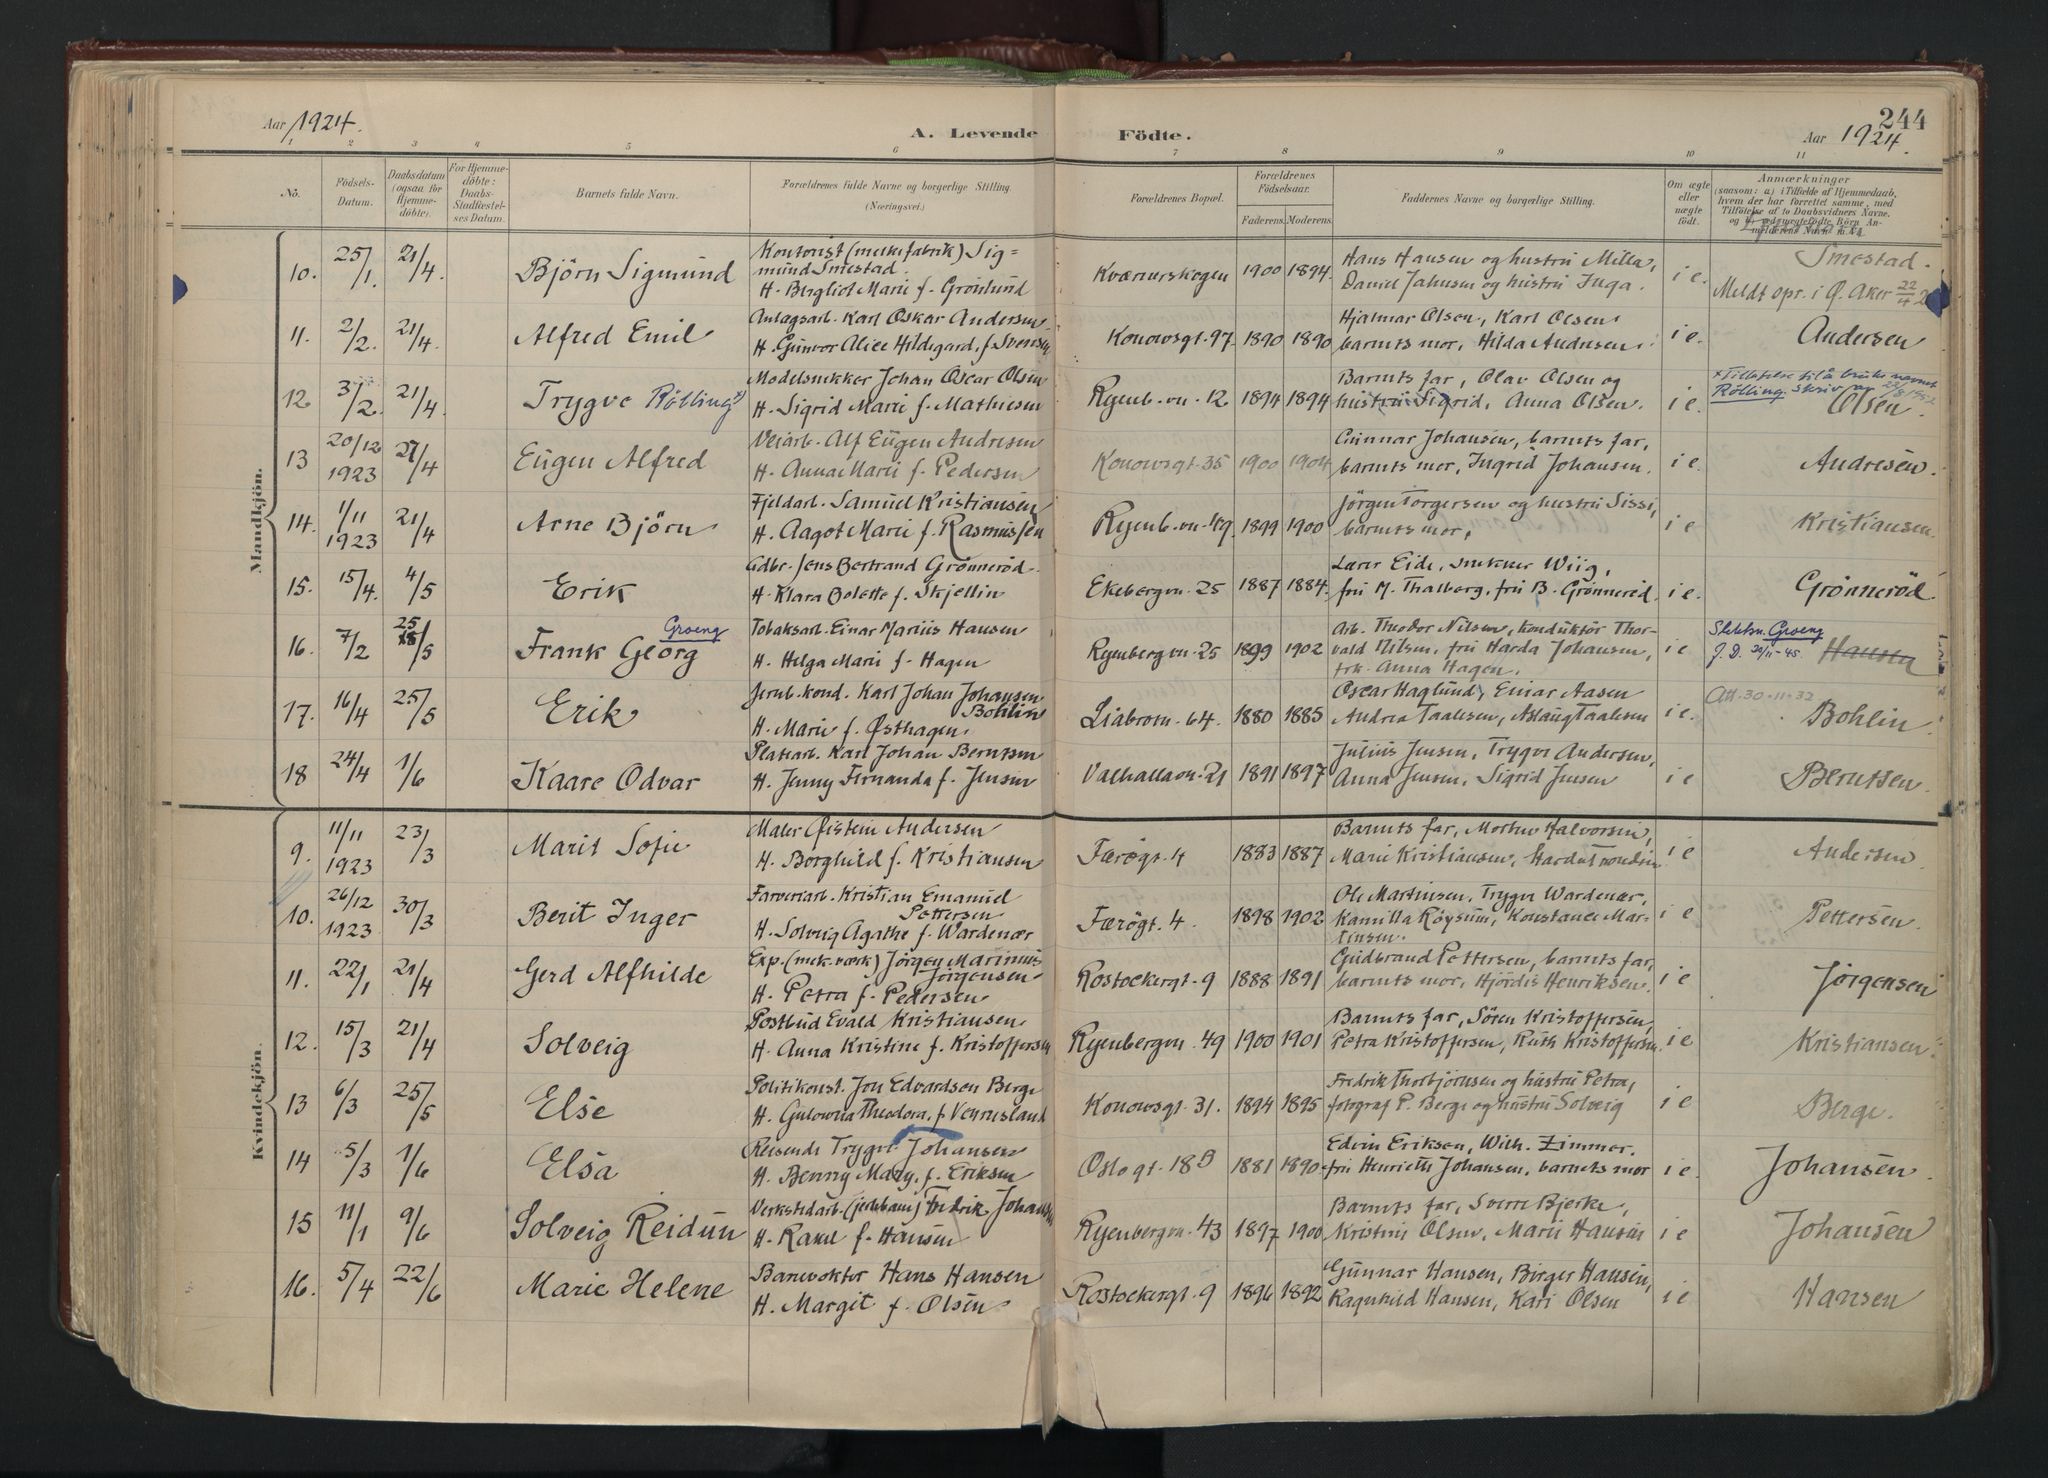 Aar 1924.
A. Levende Födte.
244
Aar 1924.
1 2 3 4 5 6 7 8 9 10 11
No.
Födsels-Datum.
Daabsdatum (ogsaa for Hjemmedöbte).
For Hjemmedöbte: Daabs-Stadfæstelses Datum.
Barnets fulde Navn.
Forældrenes fulde Navne og borgerlige Stilling. (Næringsvei.)
Forældrenes Bopæl.
Forældrenes Födselsaar.
Faderens. Moderens.
Faddernes Navne og borgerlige Stilling.
Om ægte eller uægte födt.
Anmærkninger
(saasom: a) i Tilfælde af Hjemmedaab, hvem der har forrettet samme, med Tilföielse af to Daabsvidners Navne, og b) ved uægtefödte Börn Anmelderens Navn m. v.)
Mandkjön.
10. 25/1. 21/4. Björn Sigmund
Kontorist (melkefabrik) Sig=
mund Smestad.
H. Bergliot Marie f. Grönlund
Kværnerskogen 1900 1894.
Hans Hansen og hustru Milla,
Daniel Jahnsen og hustru Inga.
i e.
Smestad.
Meldt opr. i Ø. Aker 22/4 2
11. 2/2. 21/4. Alfred Emil
Anlagsarb. Karl Oskar Andersen
H. Gunvor Alice Hildegard, f. Svensen
Konowsgt. 97. 1890 1890
Hjalmar Olsen, Karl Olsen
barnets mor, Hilda Andersen.
i e.
Andersen
12 3/2. 21/4. Trygve Rölling x)
Modelsnekker Johan Oscar Olsen
H. Sigrid Marie f. Mathiesen
Ryenb.vn. 12 1894 1894
Barnets far, Olav Olsen og
hustru Sigrid, Anna Olsen.
i e.
x Tillatelse til å bruke navnet
Rölling. skriv av 22/8 1952
Olsen.
13 20/12 1923 21/4 Eugen Alfred
Veiarb. Alf Eugen Andresen
H. Anna Marie f. Pedersen
Konowsgt. 35 1900 1904
Gunnar Johansen, barnets far,
barnets mor, Ingrid Johansen.
i e.
Andresen.
14. 1/11 1923 21/4 Arne Björn
Fjeldarb. Samuel Kristiansen
H. Aagot Marie f. Rasmussen
Ryenb.vn. 49. 1899 1900
Jörgen Torgersen og hustru Sissi,
barnets mor,
i e
Kristiansen.
15. 15/4. 4/5 Erik
Gdbr. Jens Bertrand Grönneröd
H. Klara Bolette f. Skjellin
Ekebergvn. 25 1887 1884.
Lærer Eide, snekner Wiig,
fru M. Thalberg, fru B. Grönneröd.
i e.
Grönneröd.
16. 7/2 25/5 Frank Georg Groeng
Tobaksarb. Einar Marius Hansen
H. Helga Marie f. Hagen
Ryenbergvn. 25 1899 1902
Arb. Theodor Nilsen, konduktör Thor-
vald Nilsen, fru Harda Johansen,
frk. Anna Hagen.
i e
Slektsn. Groeng
J. D. 20/11-45. Hansen
17. 16/4 25/5 Erik
Jernb. kond. Karl Johan Johansen
Bohlin
H. Marie f. Østhagen.
Liabrovn. 64. 1880 1885
Oscar Haglund, Einar Aasen
Andrea Taalesen, Aslaug Taalesen
i e.
Att. 30.11.32
Bohlin
18 24/4 1/6 Kaare Odvar
Platearb. Karl Johan Berntsen
H. Jenny Fernanda f. Jensen
Valhallavn. 21 1891 1897
Julius Jensen, Trygve Andersen,
Anna Jensen, Sigrid Jensen
i e
Berntsen.
Kvindekjön.
9. 11/11 1923 23/3 Marit Sofie
Maler Øistein Andersen
H. Borghild f. Kristiansen
Færögt. 4 1883 1887
Barnets far, Morten Halvorsen,
Marie Kristiansen, Harda Trondsen
i e
Andersen
10. 26/12 1923 30/3 Berit Inger
Farveriarb. Kristian Emanuel
Pettersen
H. Solveig Agathe f. Wardenær
Færögt. 4. 1898 1902
Ole Martinsen, Trygve Wardenær,
Kamilla Röysum, Konstance Mar-
tinsen.
i e
Pettersen.
11. 22/1 21/4 Gerd Alfhilde
Exp. (mek. værk) Jörgen Marinius
Jörgensen
H. Petra f. Pedersen
Rostockergt. 9 1888 1891
Gudbrand Pettersen, barnets far,
barnets mor, Hjördis Henriksen.
i e
Jörgensen
12. 15/3 21/4 Solveig
Postbud Evald Kristiansen
H. Anna Kristine f. Kristoffersen
Ryenbergvn. 49 1900 1901
Barnets far, Sören Kristoffersen,
Petra Kristoffersen, Ruth Kristoffersen.
i e
Kristiansen.
13 6/3 25/5 Else
Politikonst. Jon Edvardsen Berge
H. Gulowna Theodora, f. Vennesland
Konowsgt. 31. 1894 1895
Fredrik Thorbjörnsen og hustru Petra,
fotograf P. Berge og hustru Solveig
i e
Berge.
14 5/3 1/6 Elsa
Reisende Trygve Johansen
H. Benny Mary, f. Eriksen
Oslogt. 18 B 1881 1890
Edvin Eriksen, Wilh. Zimmer.
fru Henriette Johansen, barnets mor
i e.
Johansen.
15 11/1 9/6 Solveig Reidun
Verkstedarb. (jernbane) Fredrik Johansen
H. Rakel f. Hansen
Ryenbergvn. 43 1897 1900
Barnets far, Sverre Bjerke,
Kristine Olsen, Marie Hansen
i e
Johansen
16. 5/4 22/6 Marie Helene
Banevokter Hans Hansen
H. Margit f. Olsen
Rostockergt. 9 1896 1892
Gunnar Hansen, Birger Hansen,
Ragnhild Hansen, Kari Olsen
i e
Hansen